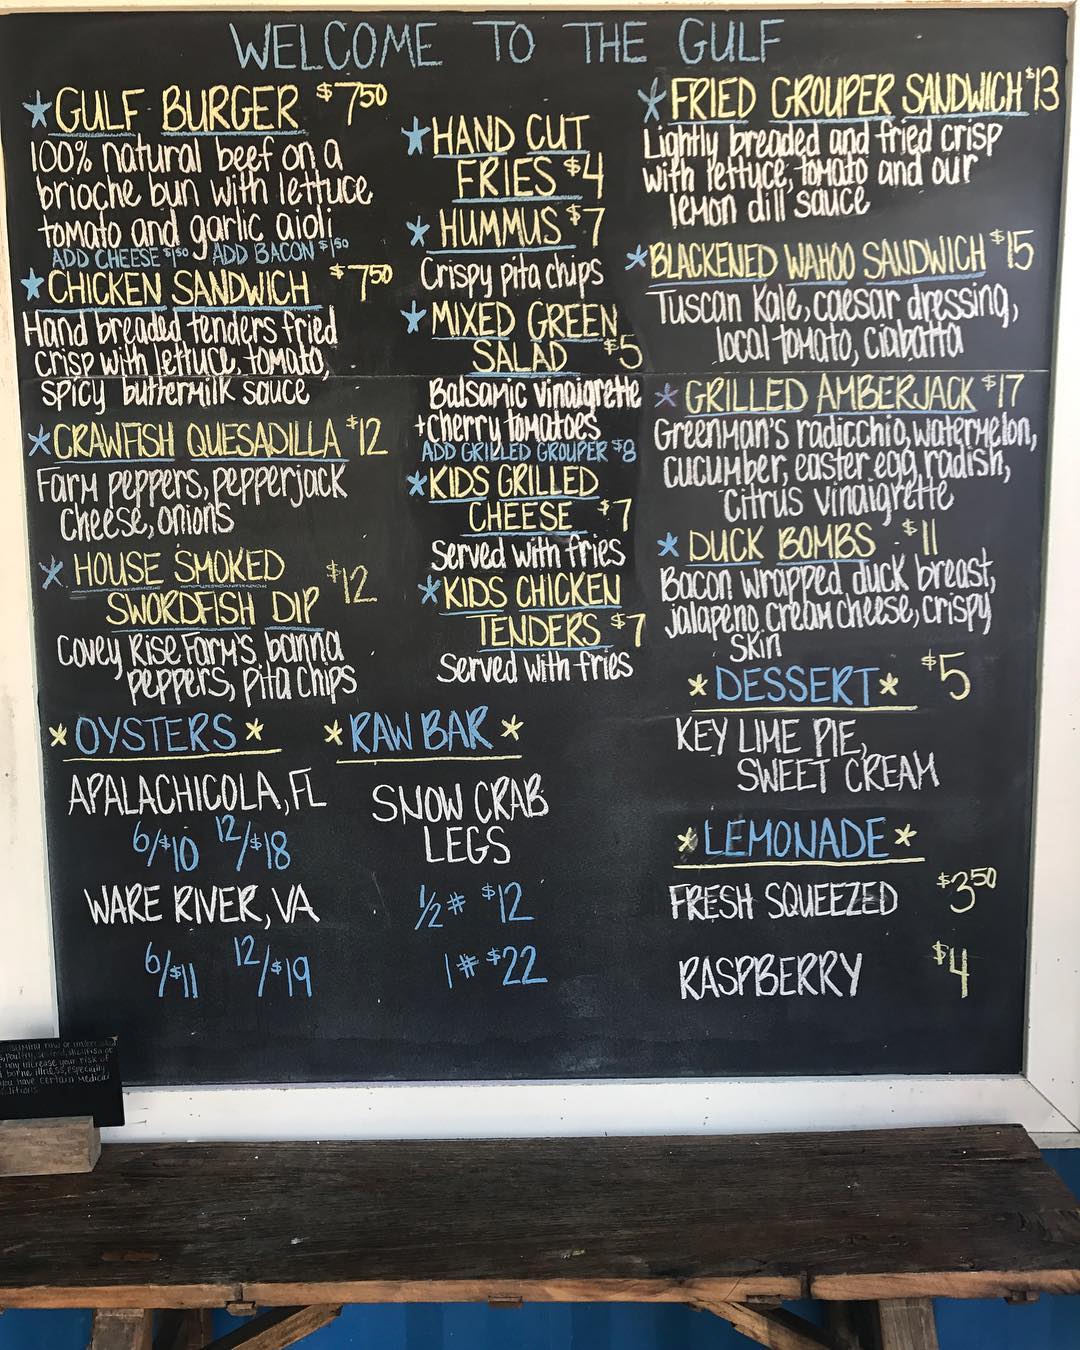 WELCOME TO THE GULF
*GULF BURGER $7⁵⁰
100% natural beef on a
brioche bun with lettuce
tomato and garlic aioli
ADD CHEESE $1⁵⁰ ADD BACON $1⁵⁰
*CHICKEN SANDWICH $7⁵⁰
Hand breaded tenders fried
crisp with lettuce, tomato,
spicy buttermilk sauce
*CRAWFISH QUESADILLA $12
Farm peppers, pepperjack
cheese, onions
*HOUSE SMOKED
SWORDFISH DIP $12
Covey Rise Farm's banna
peppers, pita chips
*HAND CUT
FRIES $4
*HUMMUS $7
Crispy pita chips
*MIXED GREEN
SALAD $5
Balsamic vinaigrette
+cherry tomatoes
ADD GRILLED GROUPER $8
*KIDS GRILLED
CHEESE $7
Served with fries
*KIDS CHICKEN
TENDERS $7
Served with fries
*FRIED GROUPER SANDWICH $13
Lightly breaded and fried crisp
with lettuce, tomato and our
lemon dill sauce
*BLACKENED WAHOO SANDWICH $15
Tuscan Kale, caesar dressing,
local tomato, ciabatta
*GRILLED AMBERJACK $17
Greenman's radicchio, watermelon,
cucumber, easter egg radish,
citrus vinaigrette
*DUCK BOMBS $11
Bacon wrapped duck breast,
jalapeno cream cheese, crispy
skin
*OYSTERS*
APALACHICOLA, FL
6/$10 12/$18
WARE RIVER, VA
6/$11 12/$19
*RAW BAR*
SNOW CRAB
LEGS
1/2# $12
1# $22
*DESSERT* $5
KEY LIME PIE,
SWEET CREAM
*LEMONADE*
FRESH SQUEEZED $3⁵⁰
RASPBERRY $4
raw or undercooked
poultry, seafood, shellfish or
may increase your risk of
borne illness, especially
you have certain medical